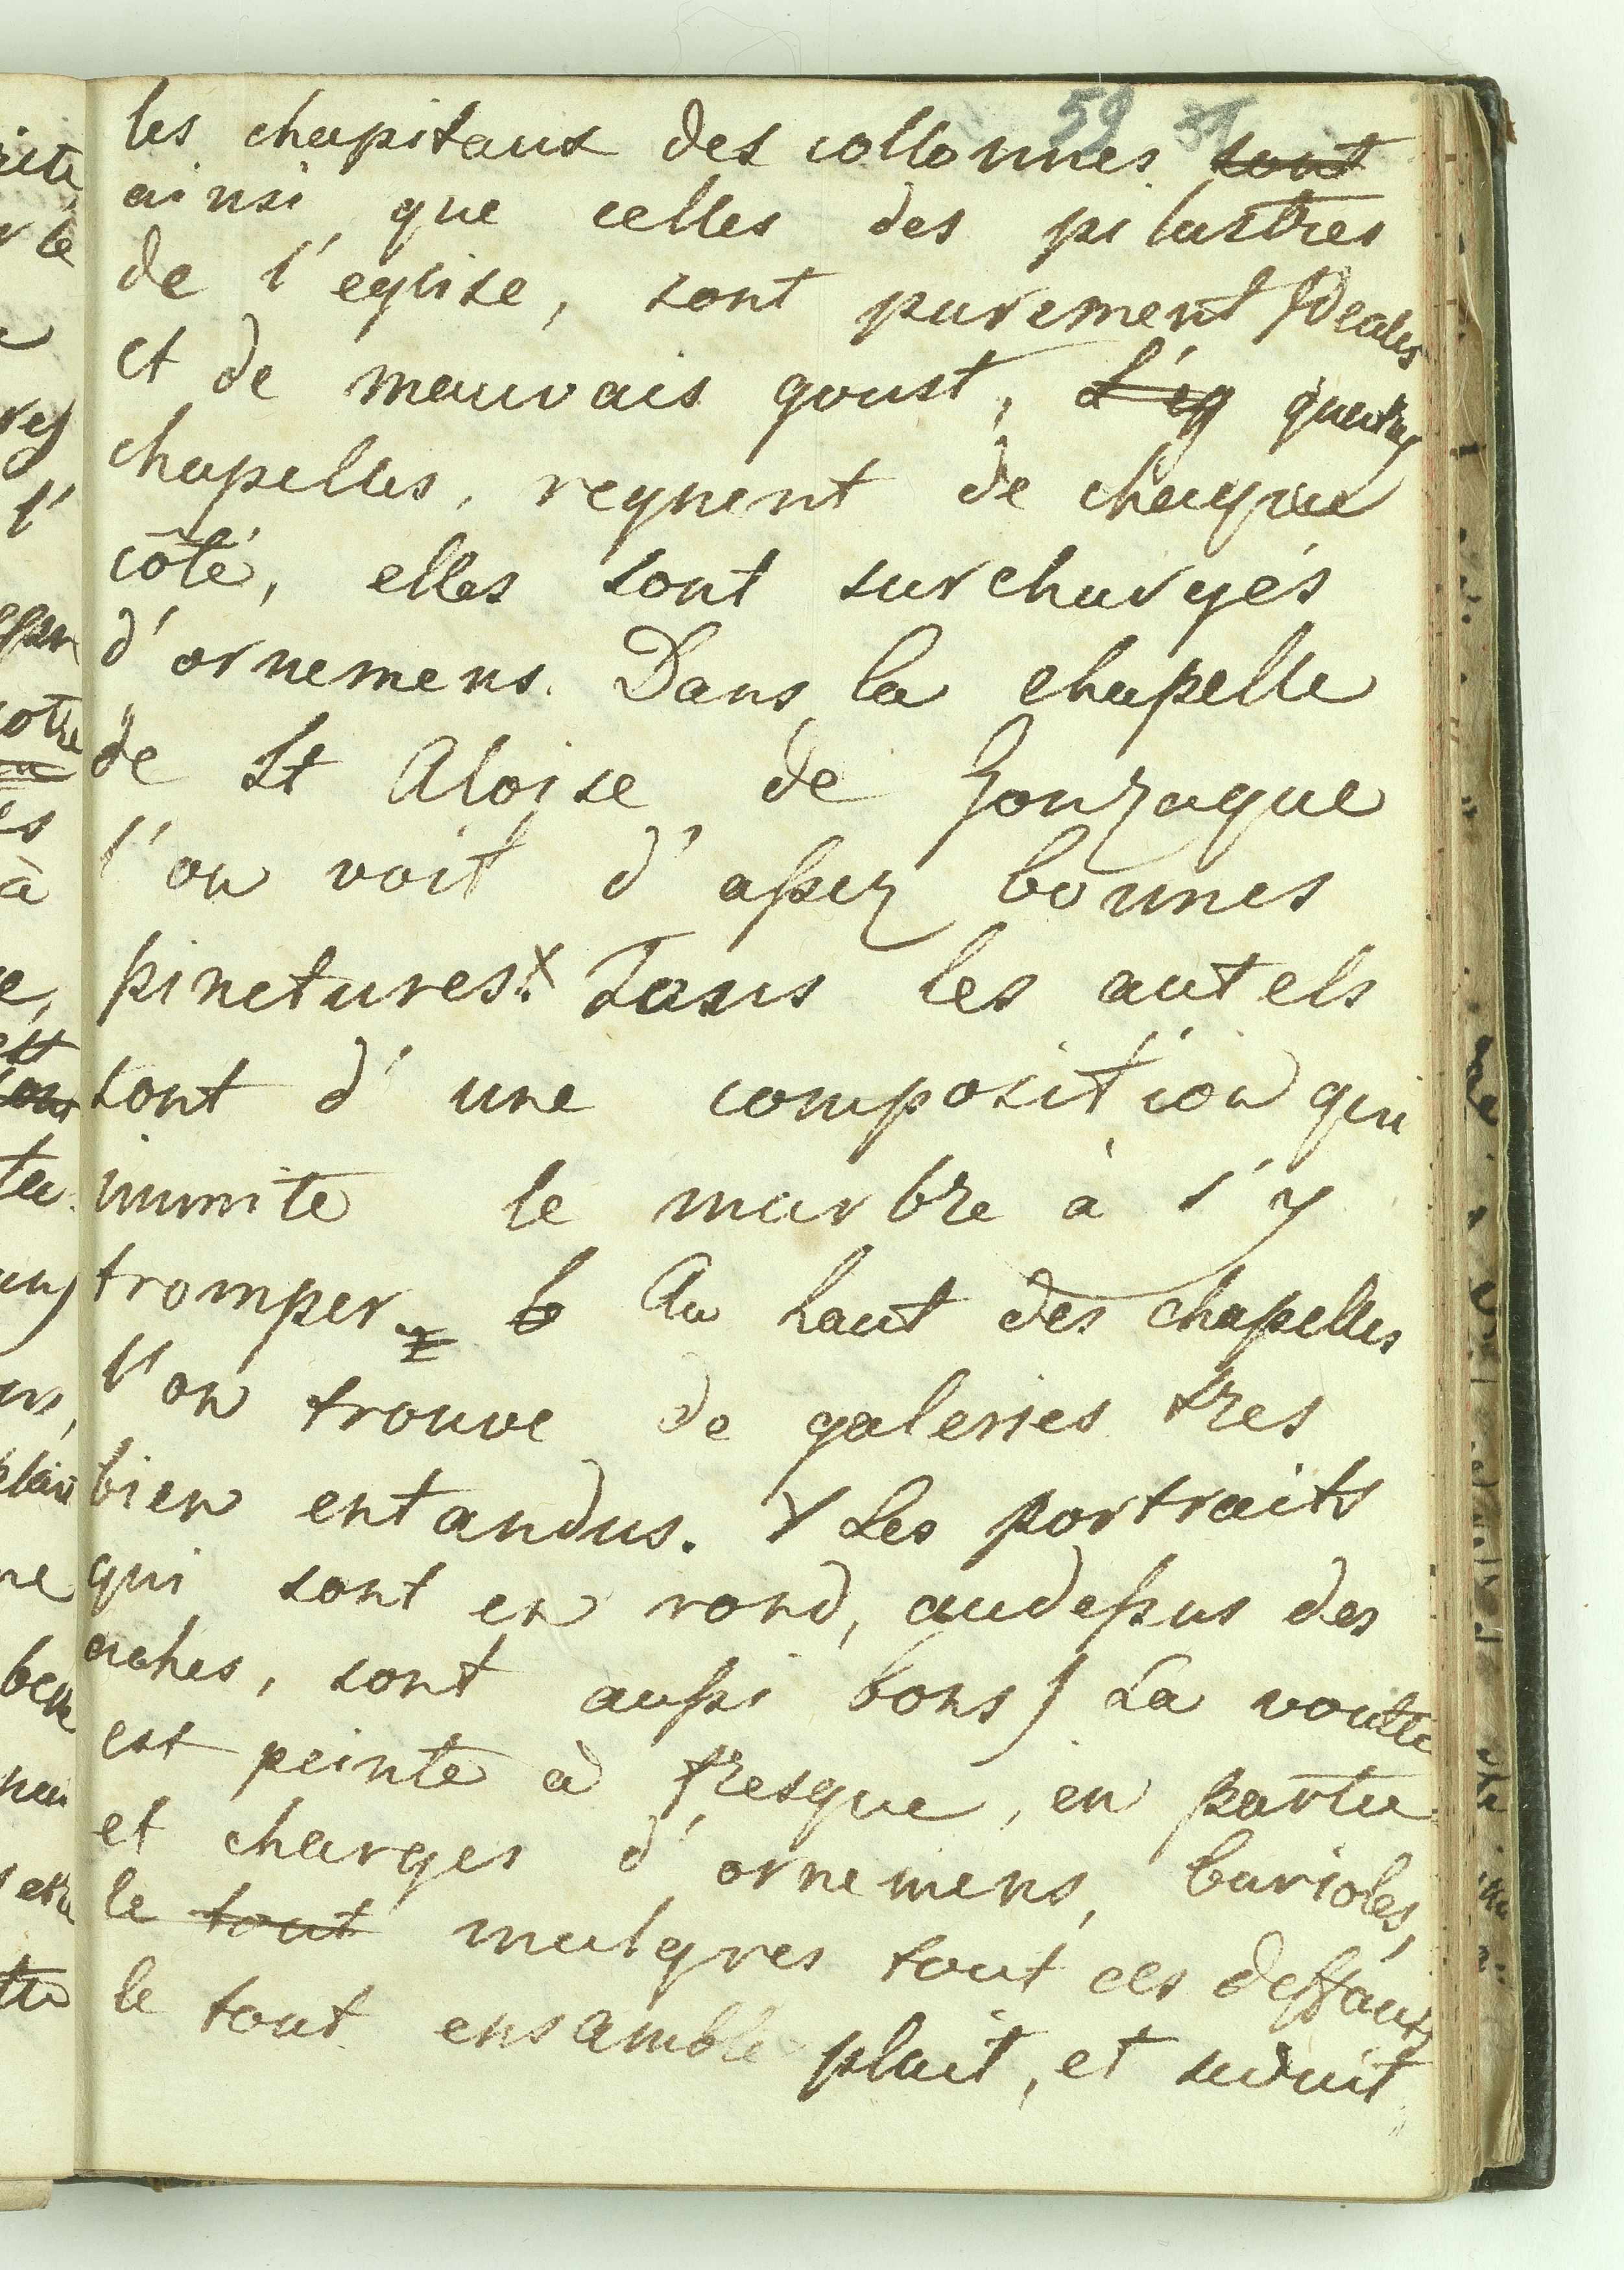 59 31
les chapitaux des collonnes sont
ainsi que celles des pilastres
de l'eglise, sont purement Ideales
et de mauvais goust, L'eg quatres
chapelles, regnent de chaque
côté, elles sont surchargés
d'ornemens. Dans la chapelle
de St Aloise de Gonzague
l'on voit d'assez bonnes
pinctures. x Tous les autels
sont d'une composition qui
immite le marbre à s'y
tromper. Au haut des chapelles
l'on trouve de galeries tres
bien entandus. x Les portraits
qui sont en rond, audessus des
arches, sont aussi bons) La voutte
est peinte à fresque, en partie
et charges d'ornemens, barioles,
le tout malgres tout ces deffaux
le tout ensamble plait, et seduit